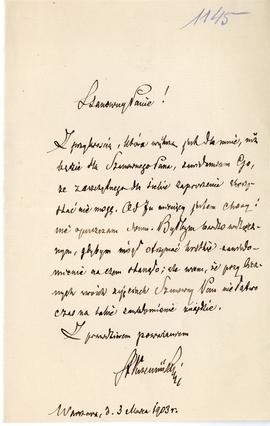 1145
Szanowny Panie!
Z przykrością, która większa jest dla mnie, niż
będzie dla Szanownego Pana, zawiadamiam Go,
że zaszczytnego dla siebie zaproszenia skorzy-
stać nie mogę. Od 3u miesięcy jestem chory i
nie opuszczam domu. Byłbym bardzo wdzięcz-
nym, gdybym mógł otrzymać krótkie zawiado-
mienie na czem stanęło; ale wiem, że przy licz-
nych swoich zajęciach Szanowny Pan nie łatwo
czas na takie zawiadomienie znajdzie.
Z prawdziwem poważaniem
Warszawa, d. 3 Marca 1903 r.